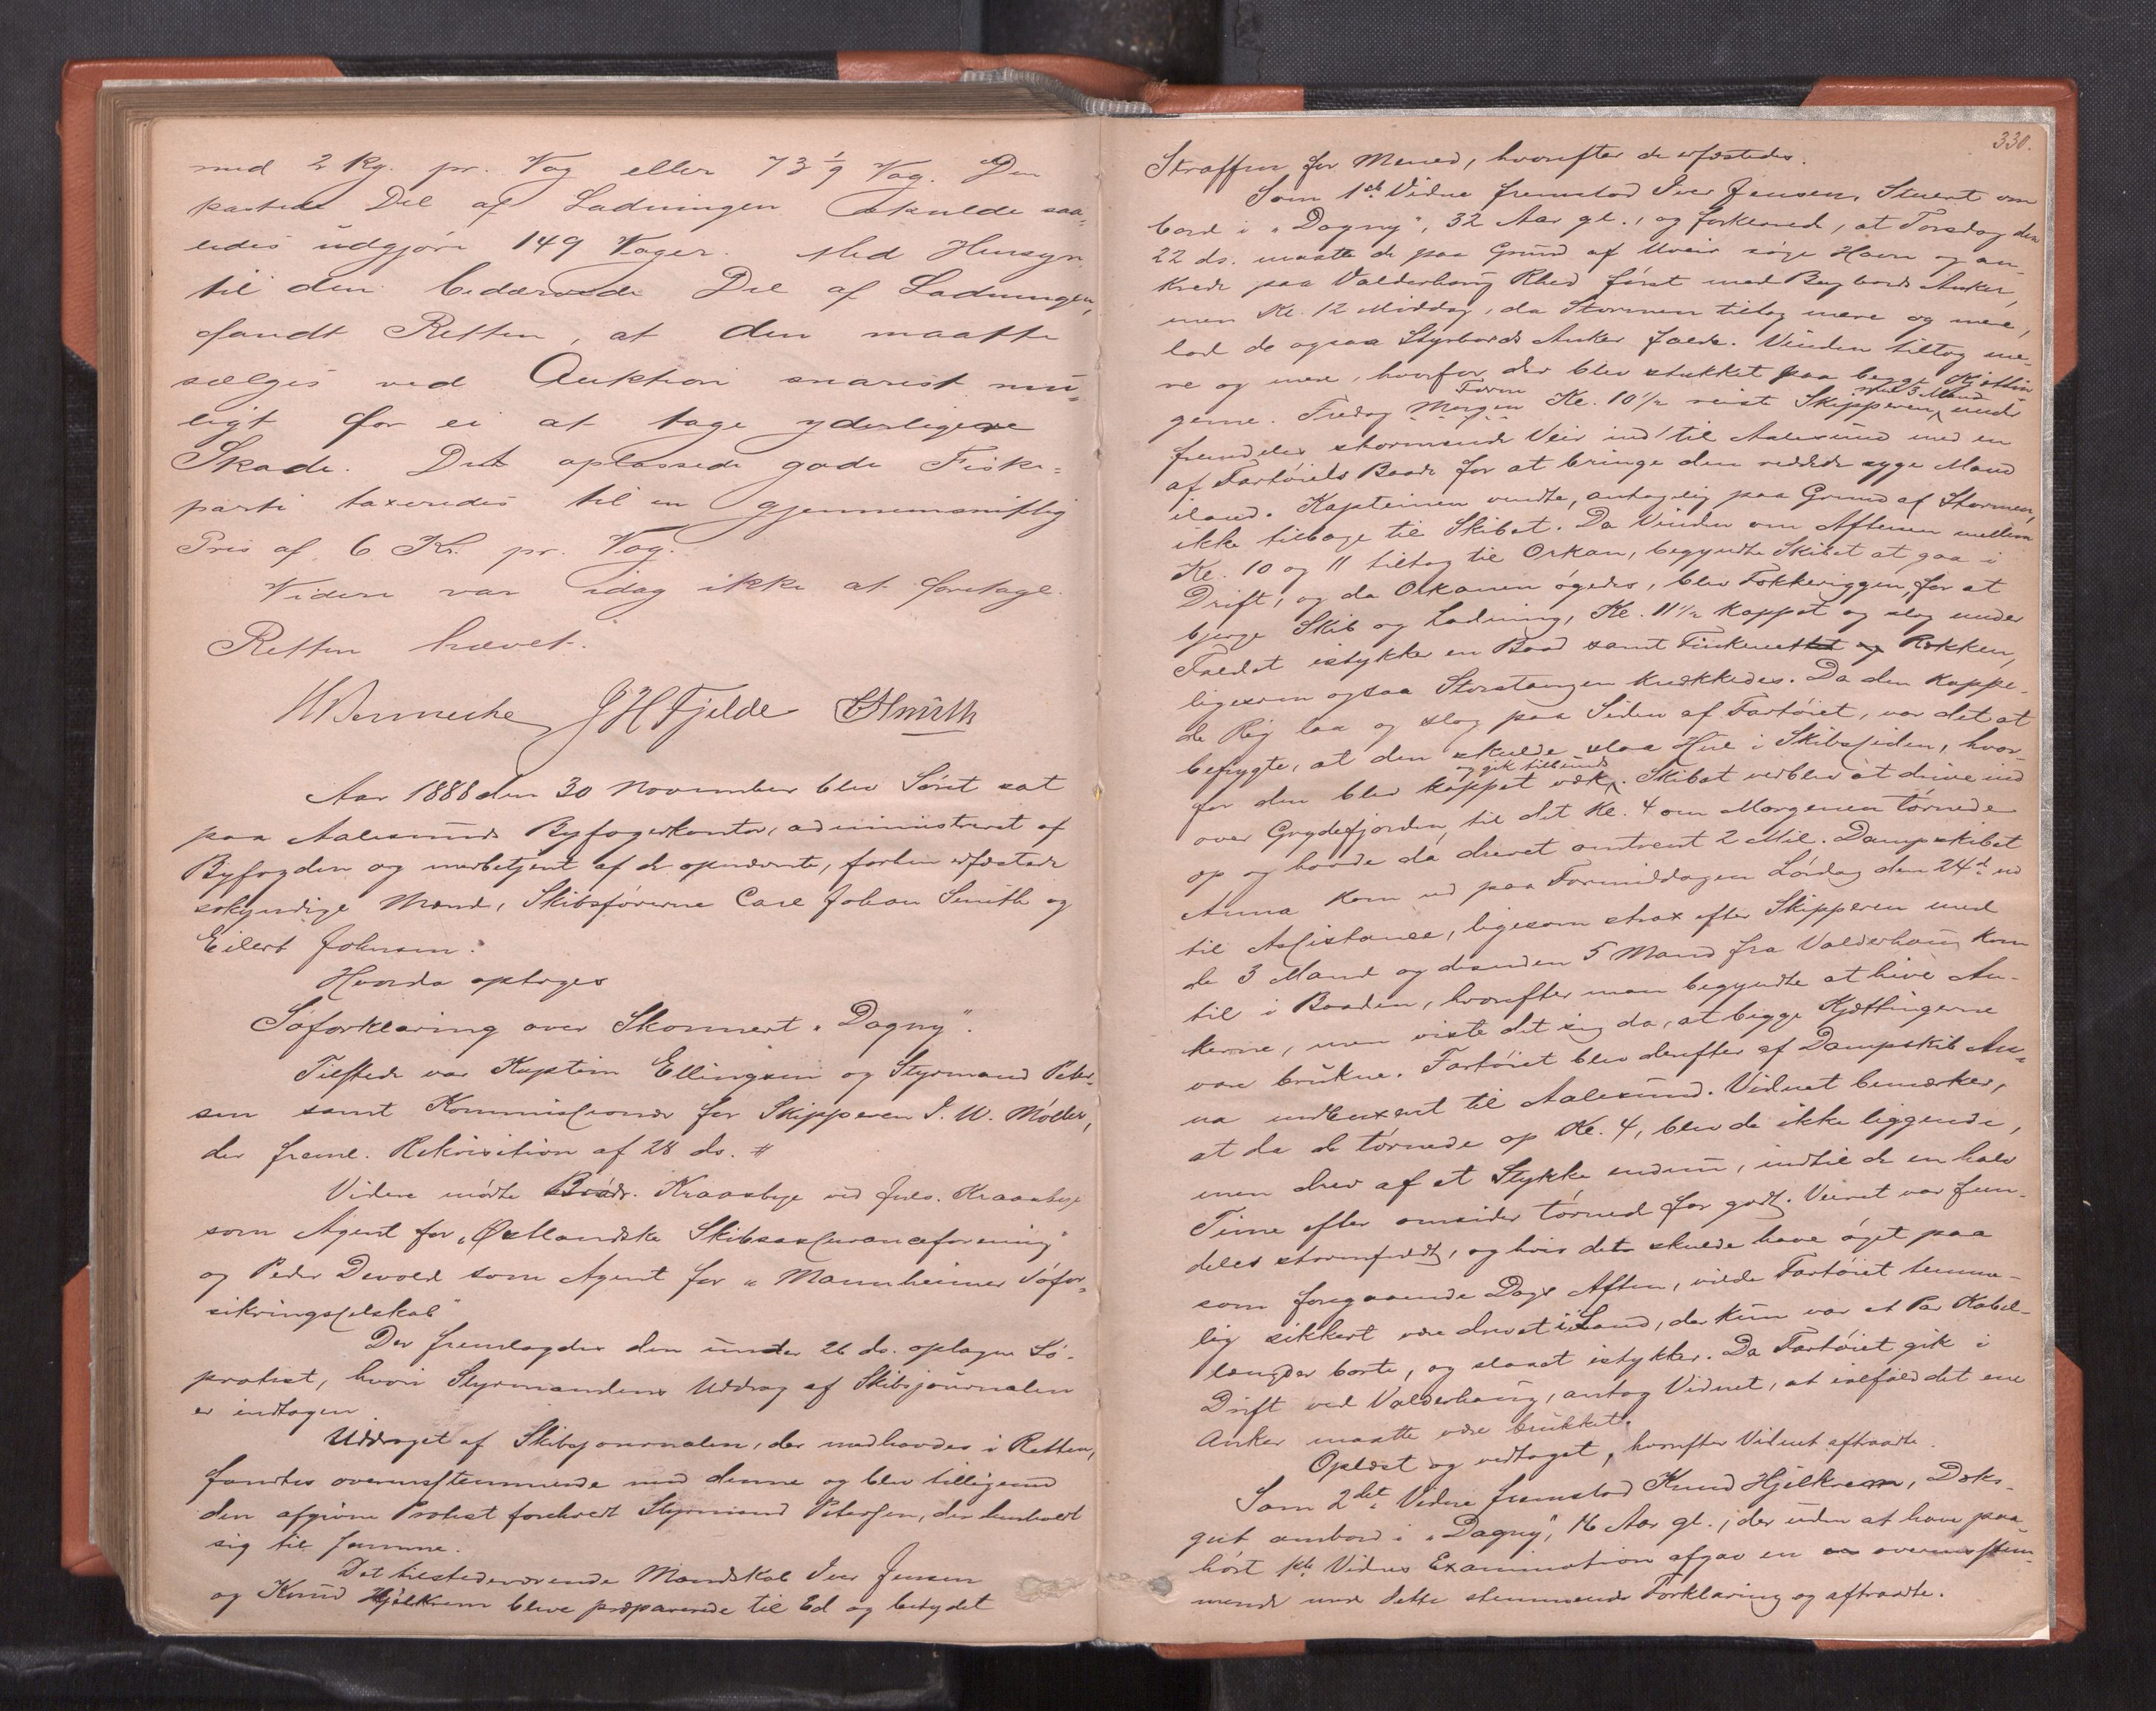 med 2 Kg. pr. Vog eller 73 1/9 Vog. Den
kastede Del af Ladningen skulde saa-
ledes udgjøre 149 Voger. Med Hensyn
til den bedærvede Del af Ladningen,
fandt Retten, at den maatte
sælges ved Auktion snarest mu-
ligt for ei at tage yderligere
Skade. Det oplossede gode Fiske-
parti taxeredes til en gjennemsnitlig
Pris af 6 Kr. pr. Vog.
Videre var idag ikke at foretage.
Retten hævet.
JHFjelde CSmith
Aar 1888 den 30 November blev Søret sat
paa Aalesunds Byfogedkontor, administreret af
Byfogden og medbetjent af de opnævnte, forhen edfæstede
søkyndige Mænd, Skibsførerne Carl Johan Smith og
Eilert Johnsen.
Hvorda optoges
Søforklaring over Skonnert "Dagny".
Tilstede var Kaptein Ellingsen og Styrmand Peter-
sen samt Kommissionær for Skipperen I. W. Møller,
der freml. Rekvisition af 28 ds. #
Videre mødte Brødr. Kraasbye ved Juls. Kraasbye
som Agent for "Østlandske Skibsassuranceforening"
og Peder Devold som Agent for "Mannheimer Søfor-
sikringsselskab"
Der fremlagdes den under 26 ds. optagne Sø-
protest, hvori Styrmandens Uddrag af Skibsjournalen
er indtagen
Uddraget af Skibsjournalen, der medhavdes i Retten,
fandtes overensstemmende med denne og blev tilligemed
den afgivne Protest forelæst Styrmand Petersen, der henholdt
sig til samme.
Det tilstedeværende Mandskab Iver Jensen
og Knud Hjelkrem bleve præparerede til Ed og betydet
330.
Straffen for Mened, hvorefter de edfæstedes.
Som 1ste Vidne fremstod Iver Jensen, Stuert om
bord i "Dagny", 32 Aar gl., og forklared, at Torsdag den
22 ds. maatte de paa Grund af Uveir søge Havn og an-
krede paa Valderhaug Rhed først med Bagbords Anker,
men Kl. 12 Middag, da Stormen tiltog mere og mere,
lod de ogsaa Styrbords Anker falde. Vinden tiltog me-
re og mere, hvorfor der blev stukket paa begge Kjættin-
gerne. Fredag Morgen Form Kl. 10 1/2 reiste Skipperen med 3 Mand under
fremdeles stormende Veir ind til Aalesund med en
af Fartøiets Baade for at bringe den reddede syge Mand
iland. Kapteinen vendte, antagelig paa Grund af Stormen,
ikke tilbage til Skibet. Da Vinden om Aftenen mellem
Kl. 10 og 11 tiltog til Orkan, begyndte Skibet at gaa i
Drift, og da Orkanen øgedes, blev Fokkeriggen, for at
bjerge Skib og Ladning, Kl. 11 1/2 kappet og slog under
Faldet istykker en Baad samt Finkenettet og Rækken,
ligesom ogsaa Storstangen knækkedes. Da den kappe-
de Rig laa og slog paa Siden af Fartøiet, var det at
befrygte, at den skulde slaa Hul i Skibssiden, hvor-
for den blev kappet væk og gik tilbunds. Skibet vedblev at drive ind
over Grydefjorden, til det Kl. 4 om Morgenen tørnede
op og havde da drevet omtrent 2 Mil. Dampskibet
Anna kom ud paa Formiddagen Lørdag den 24de ud
til Assistance, ligesom strax efter Skipperen med
de 3 Mand og desuden 5 Mand fra Valderhaug kom
til i Baaden, hvorefter man begyndte at hive An-
kerne, men viste det sig da, at begge Kjættingerne
vare brukne. Fartøiet blev derefter af Dampskib An-
na indbuxeret til Aalesund. Vidnet bemærker,
at da de tørnede op Kl. 4, blev de ikke liggende,
men drev af et Stykke endnu, indtil de en halv
Time efter omsider tørned for godt. Veiret var frem-
deles stormfuldt, og hvis det skulde have øget paa
som foregaaende Dags Aften, vilde Fartøiet temme-
lig sikkert være drevet iland, der kun var et Par Kabel-
længder borte, og slaaet istykker. Da Fartøiet gik i
Drift ved Valderhaug, antog Vidnet, at ialfald det ene
Anker maatte være brukket.
Oplæst og vedtaget, hvorefter Vidnet aftraadte.
Som 2det Vidne fremstod Knud Hjelkrem, Dæks-
gut ombord i "Dagny", 16 Aar gl., der uden at have paa-
hørt 1ste Vidnes Examination afgav en overensstem-
mende med dette stemmende Forklaring og aftraadte.